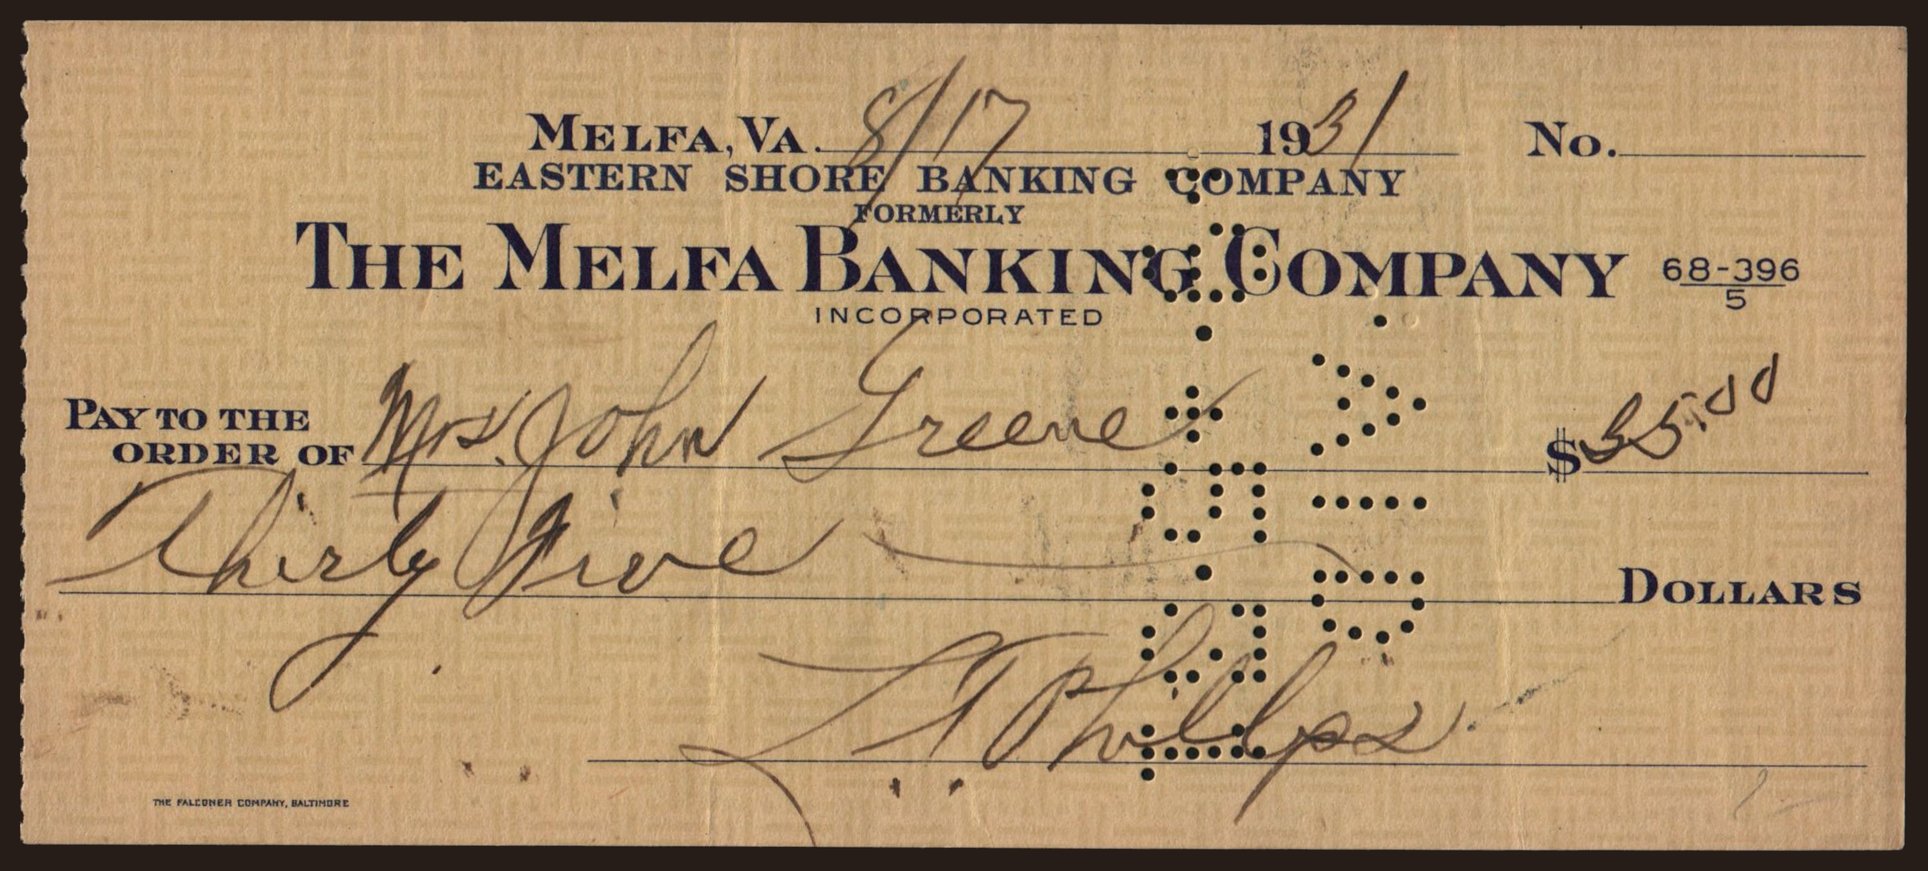 MELFA, VA. 8/17 1931 No.
EASTERN SHORE BANKING COMPANY
FORMERLY
THE MELFA BANKING COMPANY 68-396
5
INCORPORATED
PAY TO THE
ORDER OF Mrs. John Greene $35.00
Thirty Five DOLLARS
L T Phillips
THE FALCONER COMPANY, BALTIMORE